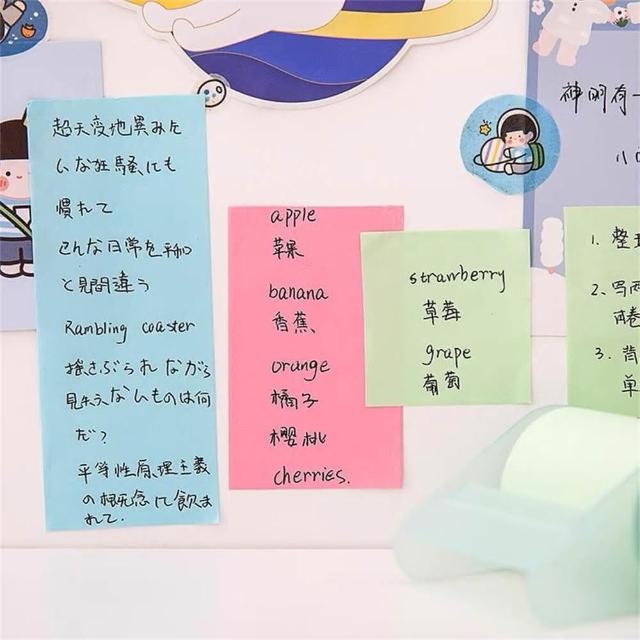 超天変地異みた
いな狂騒にも
慣れて
こんな日常を平和
と見間違う
Rambling coaster
揺さぶられながら
見失うないものは何
だ?
平等性原理主義
の概念に飲ま
れて.
apple
苹果
banana
香蕉
orange
橘子
樱桃
cherries.
strawberry
草莓
grape
葡萄
神明有一
小
1. 整理
2. 写两
卷
3. 背
单